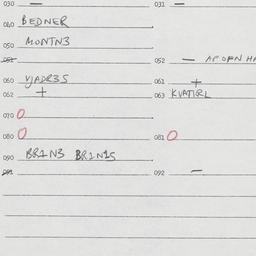 030 — 031 —
040 BEDNER
050 MONTN3
051 052 —
060 VJADR3S 061 +
062 + 063 KVATIRL
070 0
080 0 081 0
090 BR1N3 BR1N1S
091 092 —